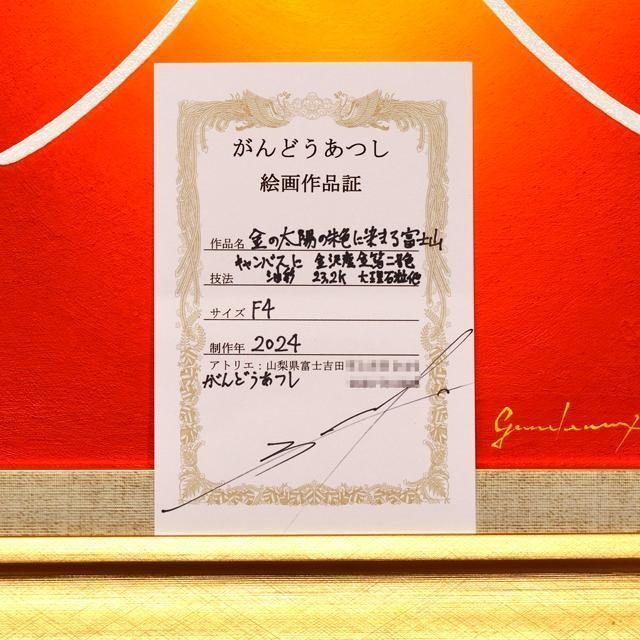 がんどうあつし
絵画作品証
作品名 金の太陽の朱色に染まる富士山
キャンバスに 金沢産金箔二号色
技法 油彩 23.2K 大理石粒他
サイズ F4
制作年 2024
アトリエ：山梨県富士吉田
がんどうあつし